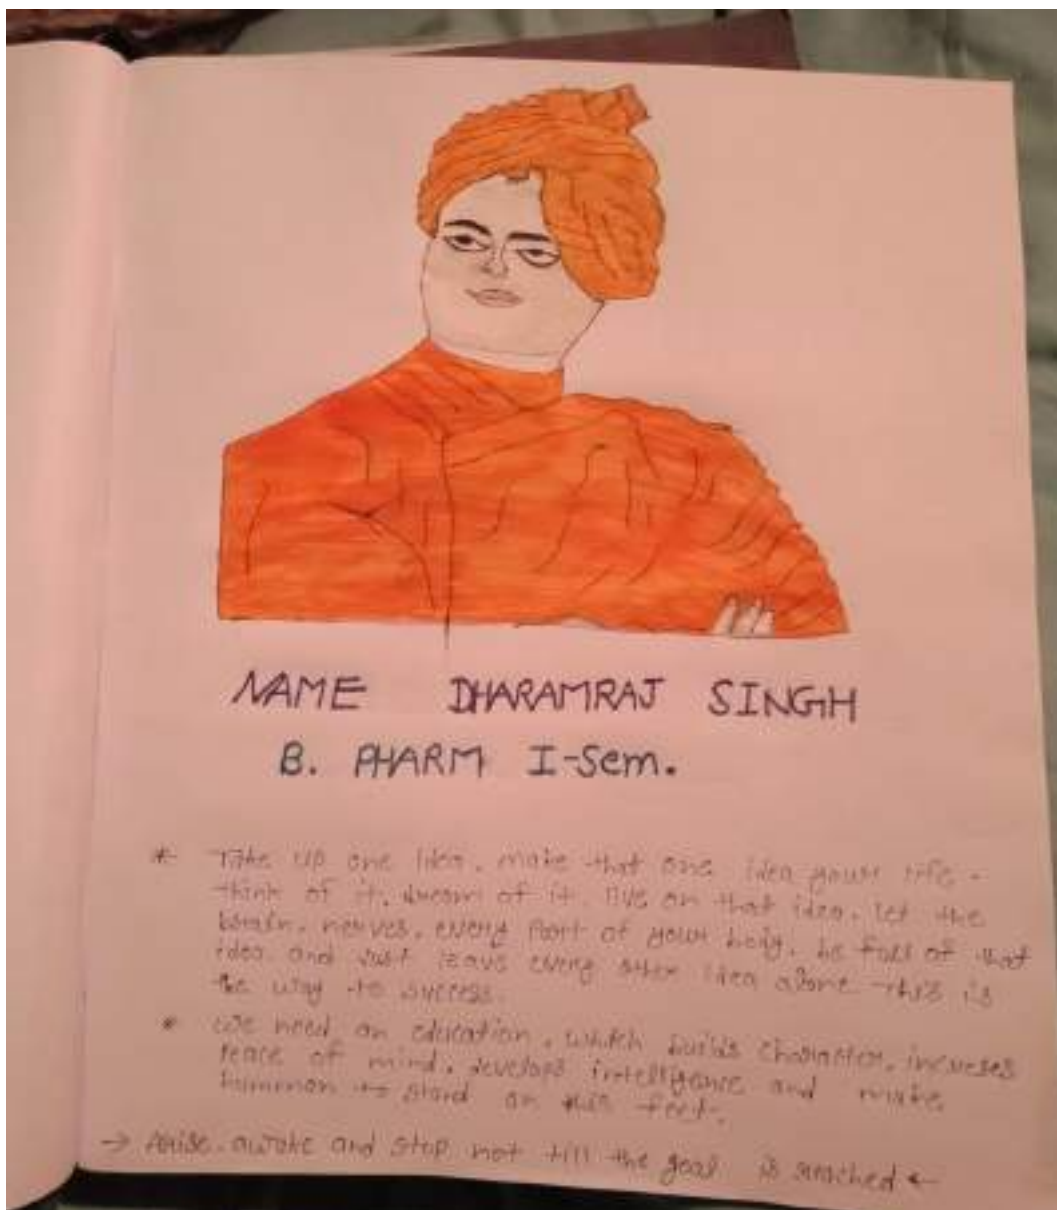 NAME DHARAMRAJ SINGH
B. PHARM I-Sem.
* Take up one idea. make that one idea your life -
think of it. dream of it. live on that idea. let the
brain. nerves. every part of your body. be full of that
idea. and just leave every other idea alone this is
the way to success.
* we need an education. which builds character. increses
peace of mind. develops intelligence and make
humman to stand on his feet.
→ Arise. awake and stop not till the goal is reached ←